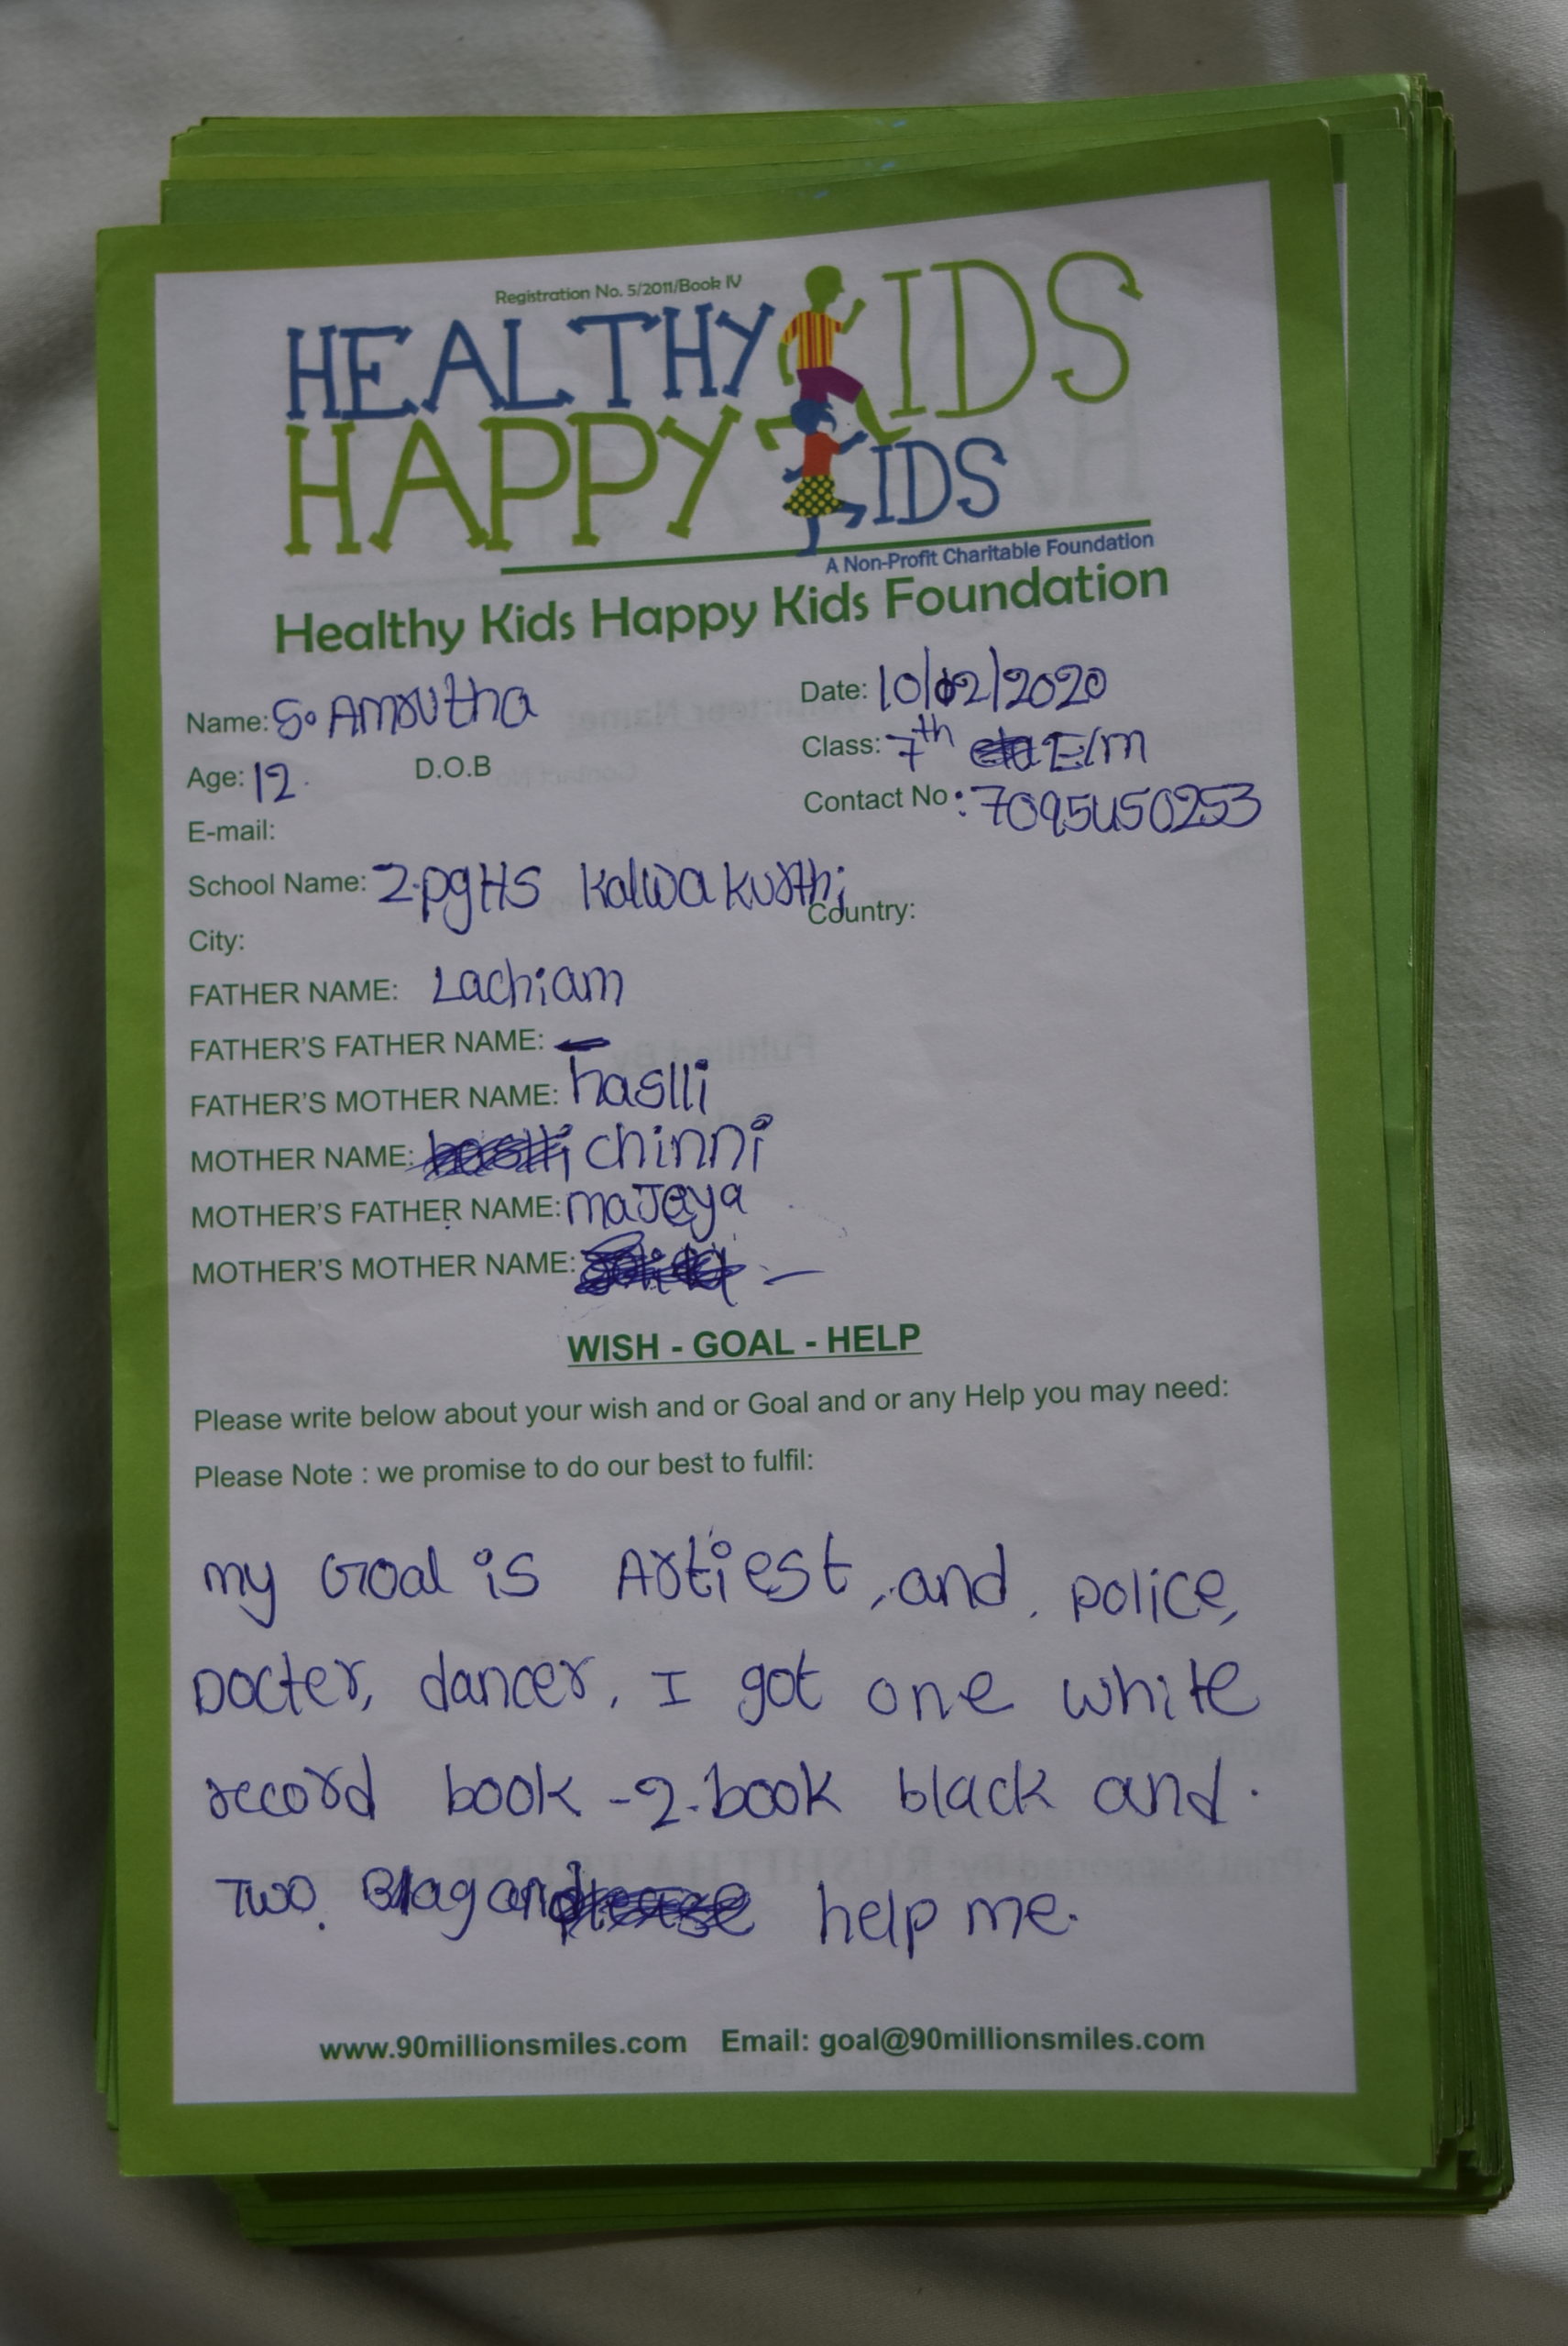 Registration No. 5/2011/Book IV
HEALTHY KIDS
HAPPY KIDS
A Non-Profit Charitable Foundation
Healthy Kids Happy Kids Foundation
Name: S. Amrutha
Date: 10/02/2020
Age: 12 D.O.B
Class: 7th E/m
Contact No : 7095450253
E-mail:
School Name: Z.pgHS Kalwakurthi
City: Country:
FATHER NAME: Lachiam
FATHER'S FATHER NAME: -
FATHER'S MOTHER NAME: haslli
MOTHER NAME: chinni
MOTHER'S FATHER NAME: maJeya
MOTHER'S MOTHER NAME: -
WISH - GOAL - HELP
Please write below about your wish and or Goal and or any Help you may need:
Please Note : we promise to do our best to fulfil:
my Goal is Artiest, and. police,
Docter, dancer, I got one white
record book -2-book black and.
Two. Blag and help me.
www.90millionsmiles.com Email: goal@90millionsmiles.com